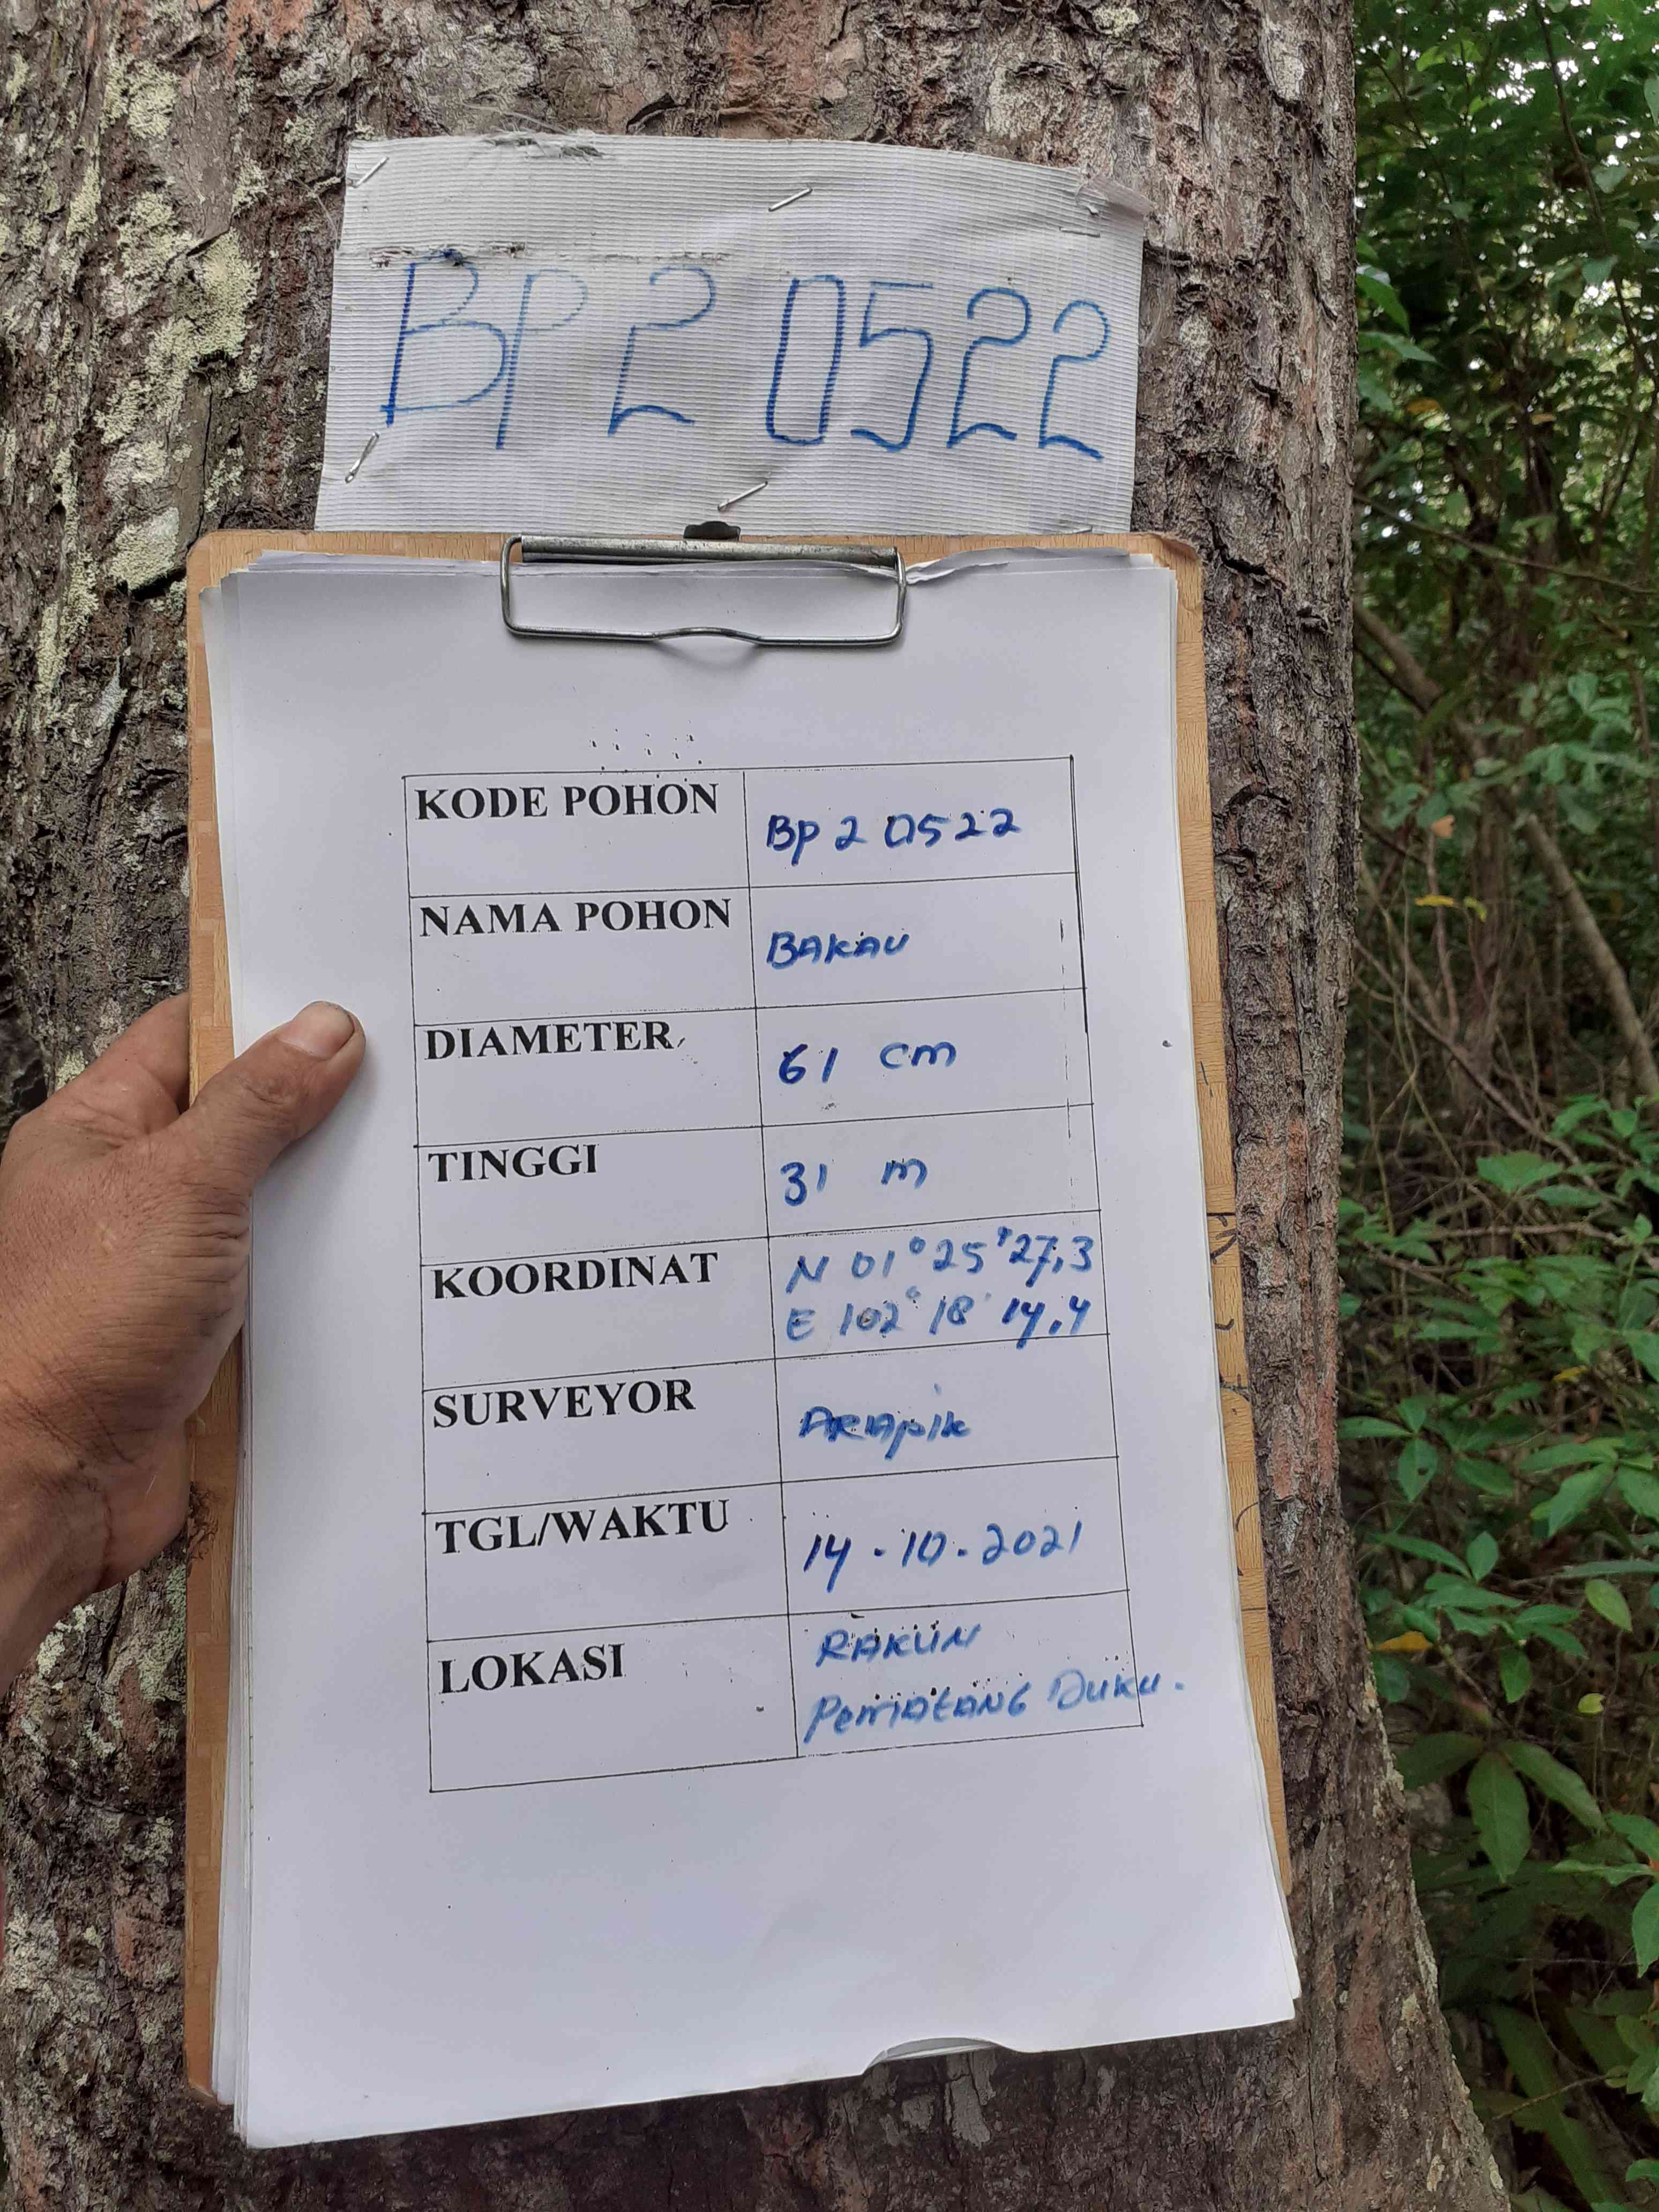 BP 2 0522
KODE POHON
Bp 2 0522
NAMA POHON
BAKAU
DIAMETER
61 cm
TINGGI
31 m
KOORDINAT
N 01° 25' 27,3
E 102° 18' 14,4
SURVEYOR
TGL/WAKTU
14.10.2021
LOKASI
RAKUN
PemAtANG DuKu.